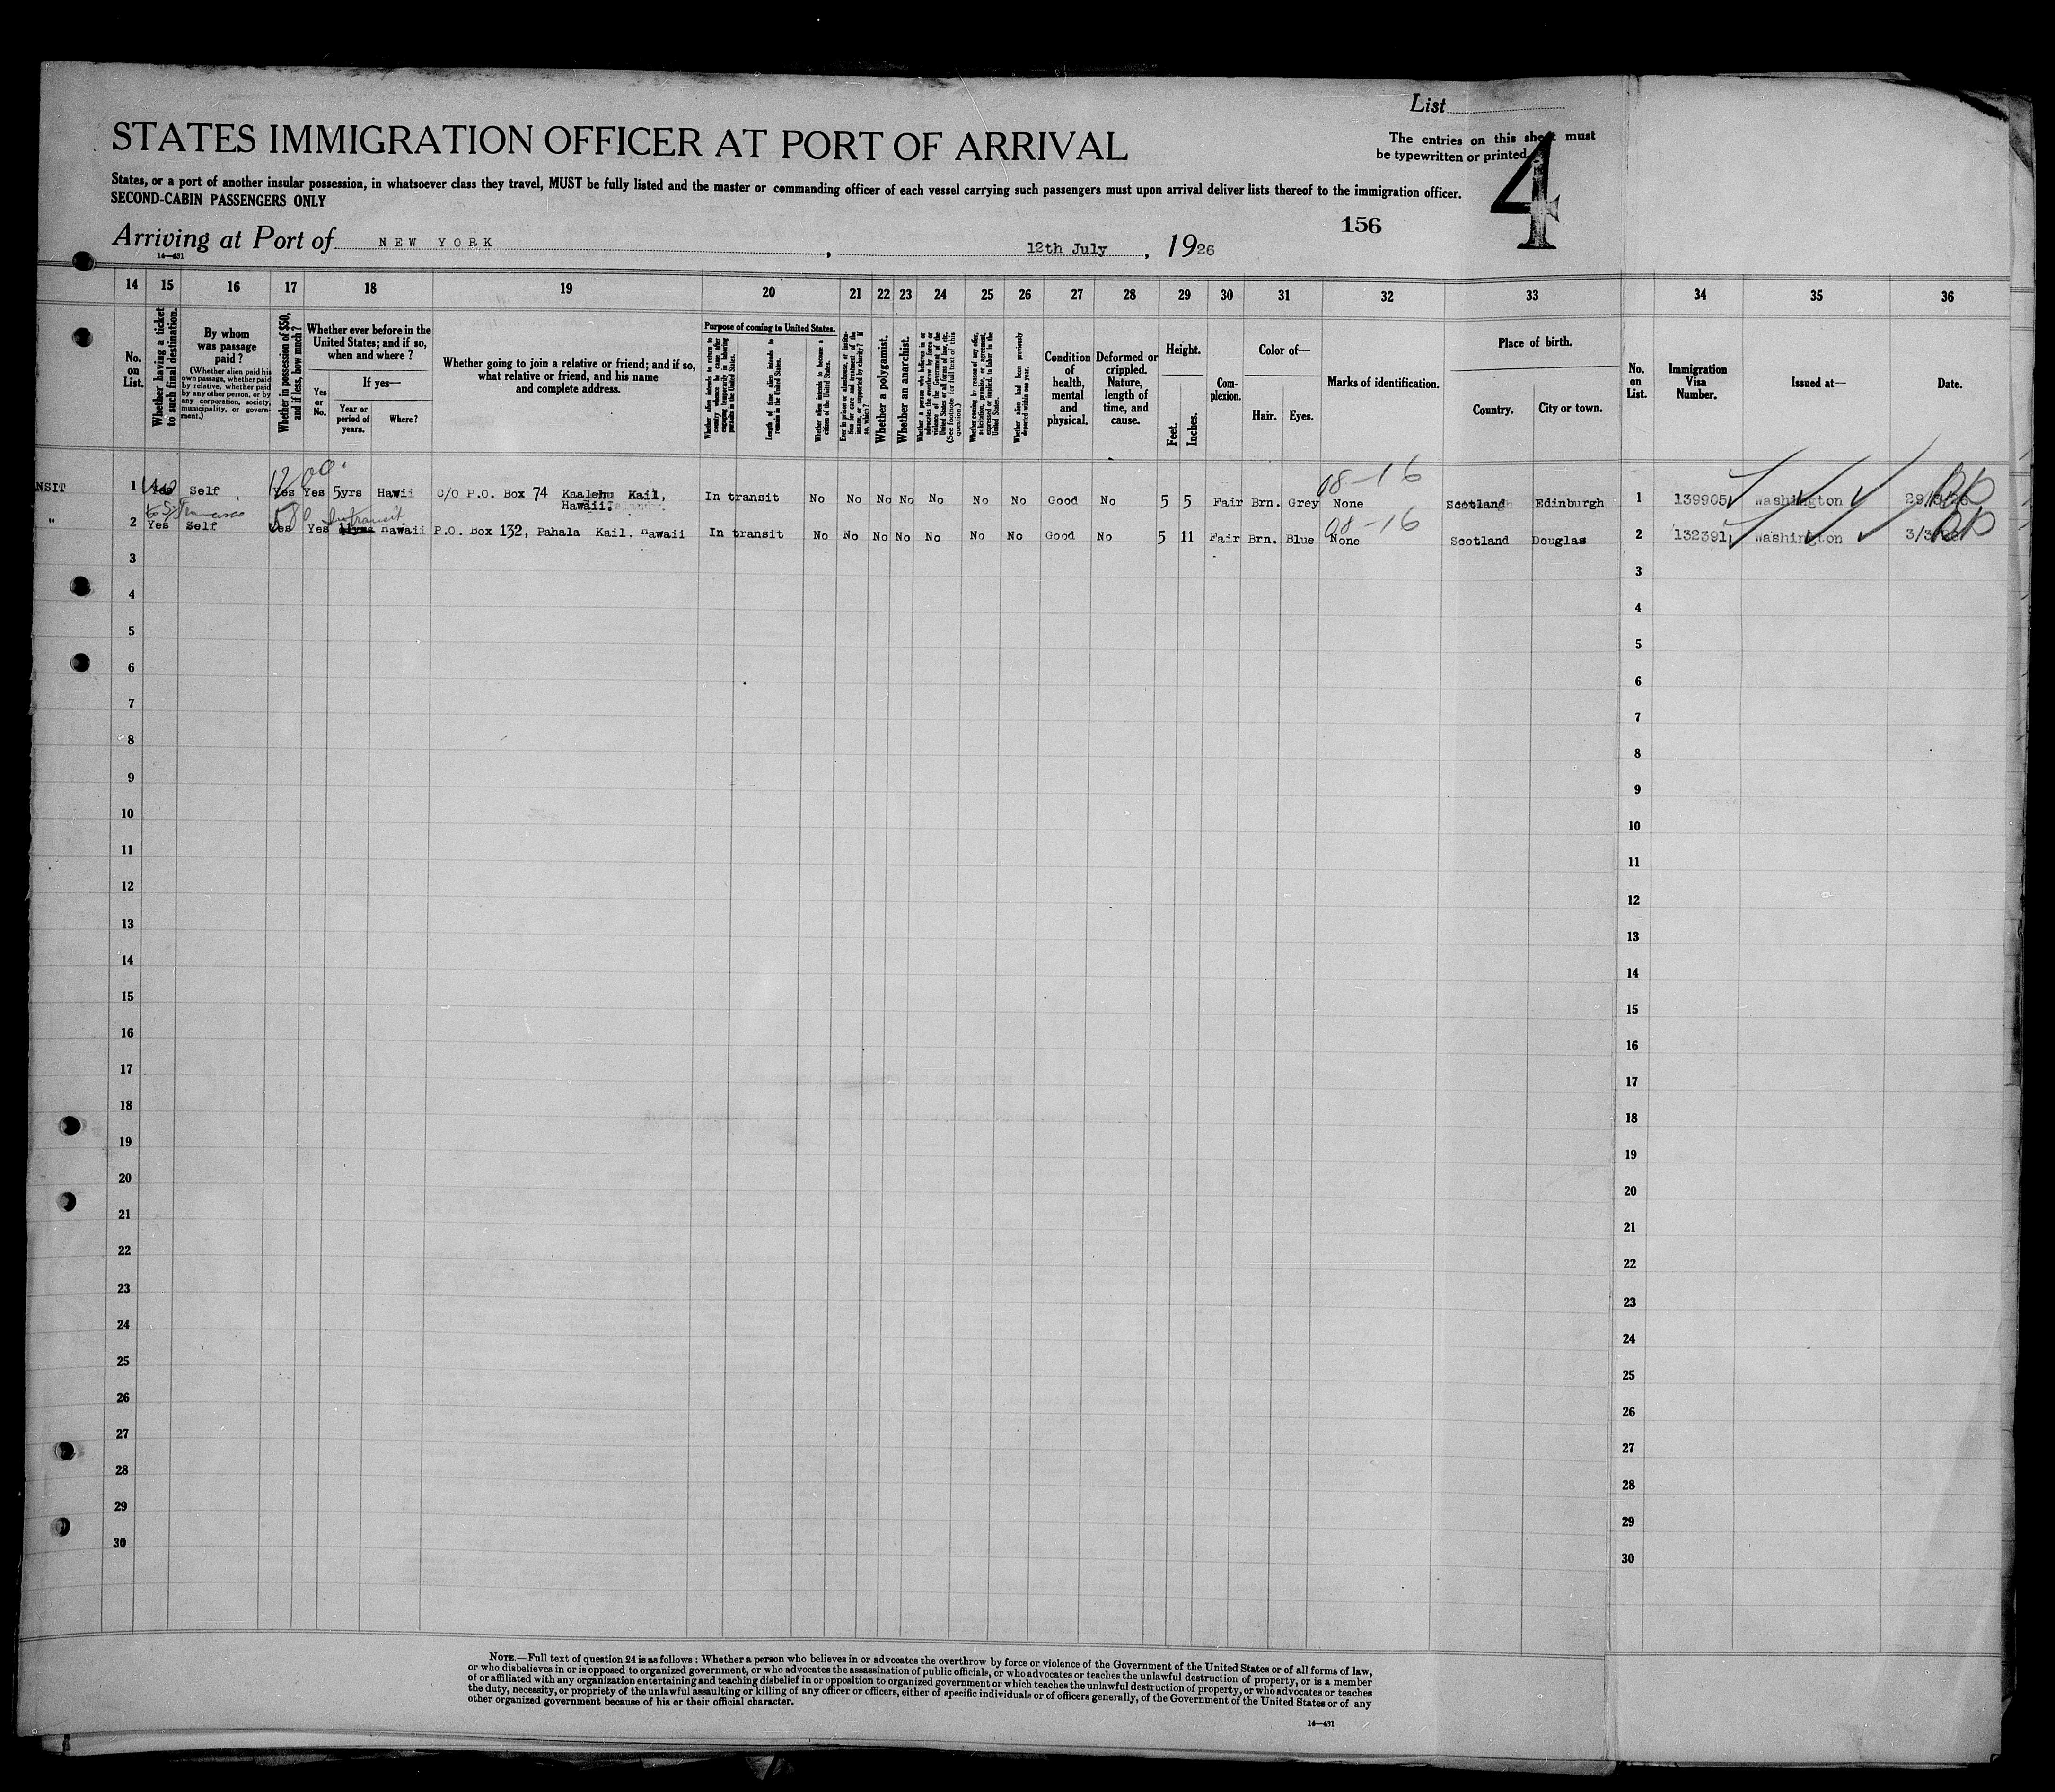 List
STATES IMMIGRATION OFFICER AT PORT OF ARRIVAL
The entries on this sheet must
be typewritten or printed.
4
States, or a port of another insular possession, in whatsoever class they travel, MUST be fully listed and the master or commanding officer of each vessel carrying such passengers must upon arrival deliver lists thereof to the immigration officer.
SECOND-CABIN PASSENGERS ONLY
156
Arriving at Port of NEW YORK, 12th July, 1926
14—431
14 15 16 17 18 19 20 21 22 23 24 25 26 27 28 29 30 31 32 33 34 35 36
No. on List.
Whether having a ticket to such final destination.
By whom was passage paid?
(Whether alien paid his own passage, whether paid by relative, whether paid by any other person, or by any corporation, society, municipality, or government.)
Whether in possession of $50, and if less, how much?
Whether ever before in the United States; and if so, when and where?
Yes or No.
If yes—
Year or period of years.
Where?
Whether going to join a relative or friend; and if so, what relative or friend, and his name and complete address.
Purpose of coming to United States.
Whether alien intends to return to country whence he came after engaging temporarily in laboring pursuits in the United States.
Length of time alien intends to remain in the United States.
Whether alien intends to become a citizen of the United States.
Ever in prison or almshouse, or institution for care and treatment of the insane, or supported by charity? If so, which?
Whether a polygamist.
Whether an anarchist.
Whether a person who believes in or advocates the overthrow by force or violence of the Government of the United States or all forms of law, etc. (See footnote for full text of this question.)
Whether coming by reason of any offer, solicitation, promise, or agreement, expressed or implied, to labor in the United States.
Whether alien had been previously deported within one year.
Condition of health, mental and physical.
Deformed or crippled. Nature, length of time, and cause.
Height.
Feet.
Inches.
Complexion.
Color of—
Hair.
Eyes.
Marks of identification.
Place of birth.
Country.
City or town.
No. on List.
Immigration Visa Number.
Issued at—
Date.
NSIT 1 Yes Self 1200 Yes Yes 5yrs Hawii C/O P.O. Box 74 Kaalehu Kail, In transit No No No No No No No Good No 5 5 Fair Brn. Grey None 08-16 Scotland Edinburgh 1 139905 Washington
Hawaii.
to S Francisco
" 2 Yes Self 580 Yes Yes In transit Hawaii P.O. Box 132, Pahala Kail, Hawaii In transit No No No No No No No Good No 5 11 Fair Brn. Blue None 08-16 Scotland Douglas 2 132391 Washington
3 3
4 4
5 5
6 6
7 7
8 8
9 9
10 10
11 11
12 12
13 13
14 14
15 15
16 16
17 17
18 18
19 19
20 20
21 21
22 22
23 23
24 24
25 25
26 26
27 27
28 28
29 29
30 30
NOTE.—Full text of question 24 is as follows: Whether a person who believes in or advocates the overthrow by force or violence of the Government of the United States or of all forms of law,
or who disbelieves in or is opposed to organized government, or who advocates the assassination of public officials, or who advocates or teaches the unlawful destruction of property, or is a member
of or affiliated with any organization entertaining and teaching disbelief in or opposition to organized government or which teaches the unlawful destruction of property, or who advocates or teaches
the duty, necessity, or propriety of the unlawful assaulting or killing of any officer or officers, either of specific individuals or of officers generally, of the Government of the United States or of any
other organized government because of his or their official character.
14—431